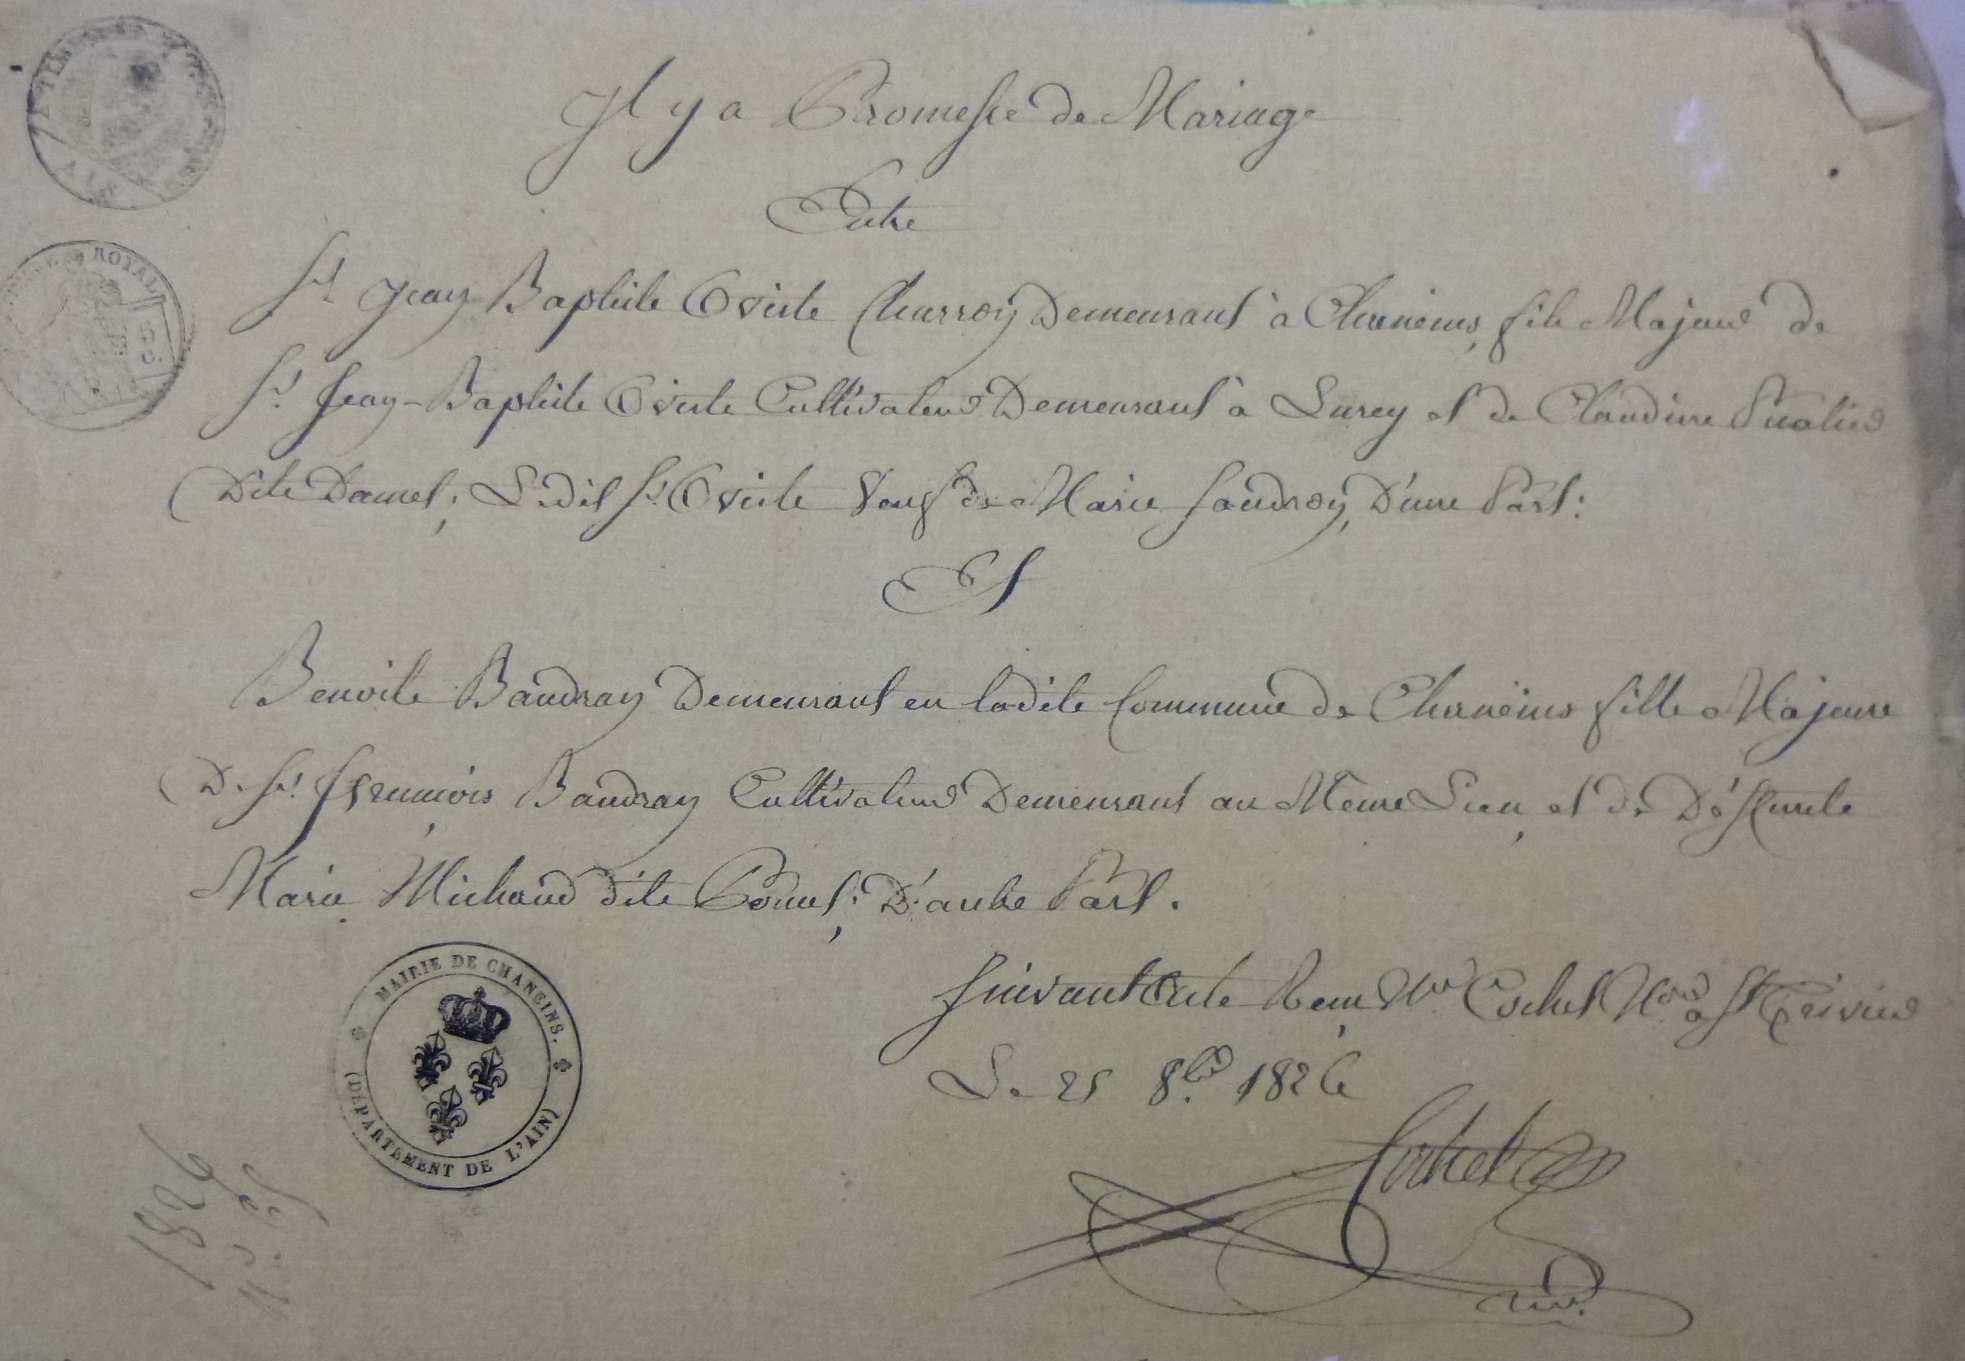 Il y a Promesse de Mariage
Entre
Sr. Jean Baptiste Oviste Charroy Demeurant à Chaneins, fils Majeur de
Sr. Jean-Baptiste Oviste Cultivateur Demeurant à Lurcy et de Claudine
Dite Damet; Ledit Sr. Oviste Veuf de Marie Jandroy, D'une Part:
Et
Benoite Baudray Demeurant en ladite Commune de Chaneins fille Majeure
De Sr. François Baudray Cultivateur Demeurant au Meme Lieu, et de Défunte
Marie Michaud dite D'autre Part.
Suivant Acte Reçu Me Cochet Nre à St Trivier
Le 25 8bre 1826
Cochet
nre.
MAIRIE DE CHANEINS.
(DEPARTEMENT DE L'AIN)
TIMBRE ROYAL
AIN
1826